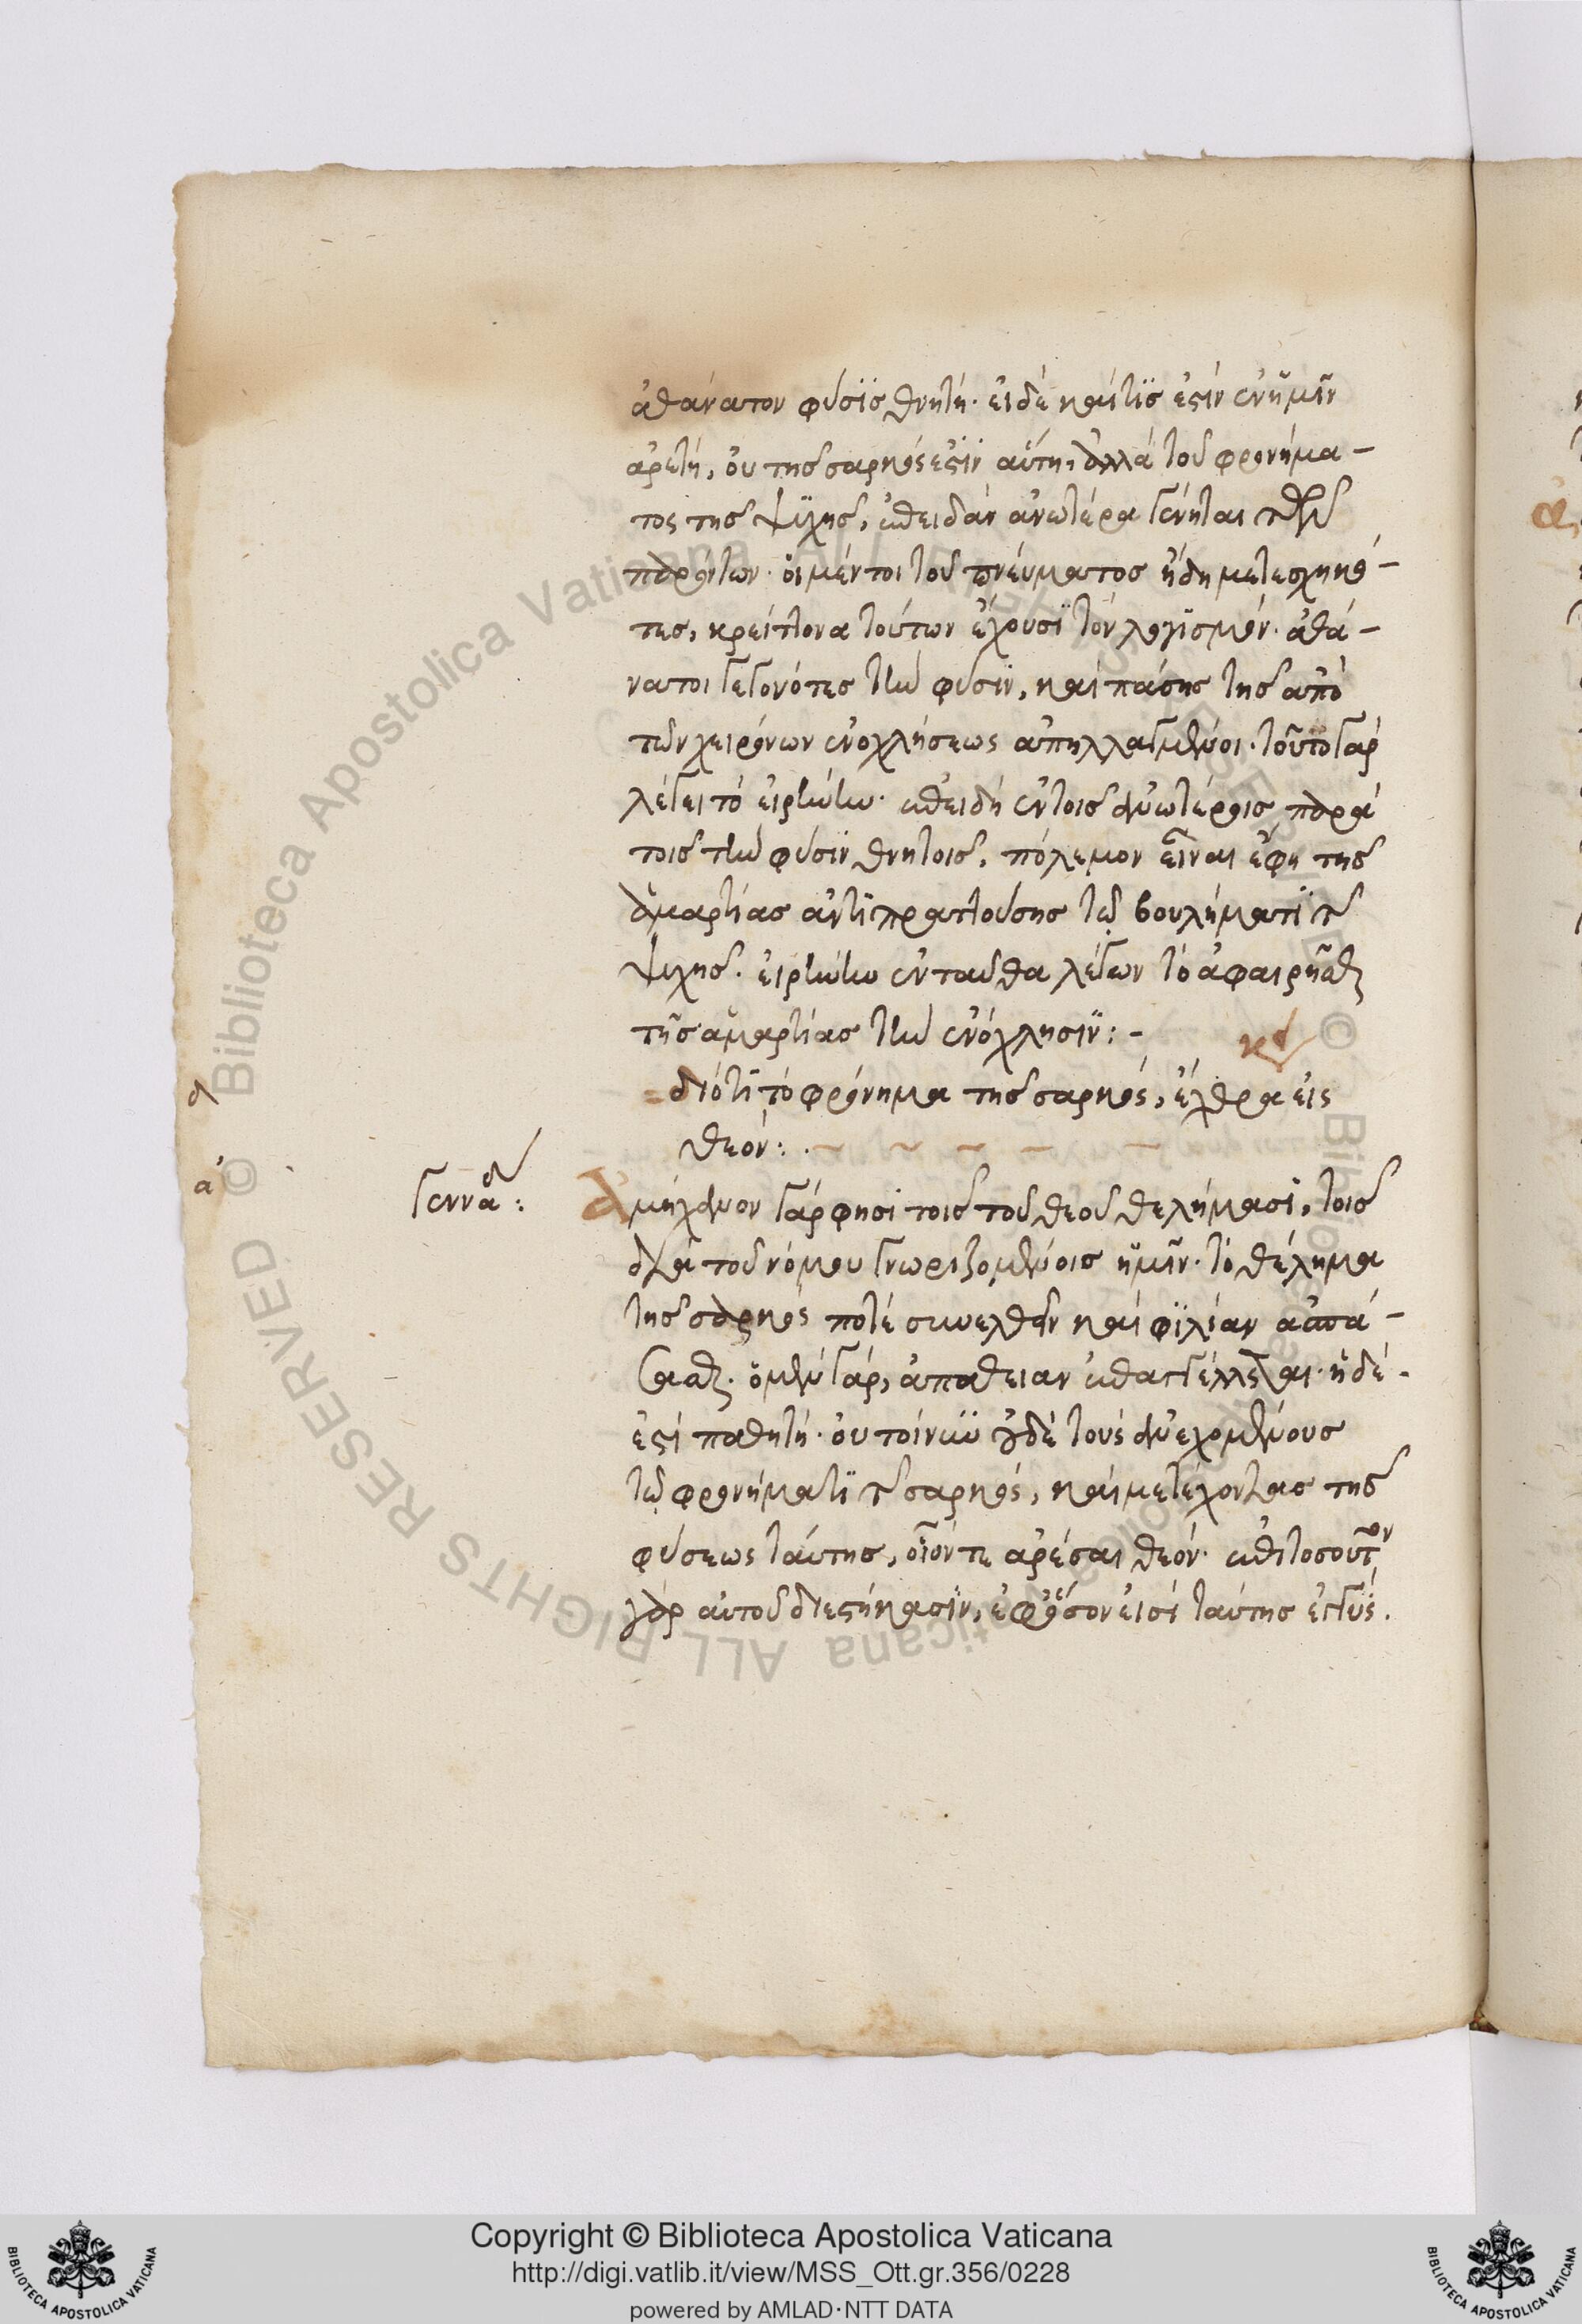 ἀθάνατον φύσϊς θνητή. εἰ δέ καί τϊς ἐστίν ἐν ἡμῖν
ἀρετή, οὐ τῆς σαρκός ἐστϊν αὕτη, ἀλλά τοῦ φρονήμα-
τος τῆς ψϋχῆς, ἐπειδάν ἀνωτέρα γένηται τῶν
παρόντων. οἱ μέν τοι τοῦ πνεύματος ἤδη μετεσχηκό-
τες, κρείττονα τούτων ἔχουσϊ τόν λογϊσμόν. ἀθά-
νατοι γεγονότες τήν φύσϊν, καί πάσης τῆς ἀπό
τῶν χειρόνων ἐνοχλήσεως ἀπηλλαγμένοι. τοῦτο γάρ
λέγει τό εἰρήνην. ἐπειδή ἐν τοῖς ἀνωτέροις παρά
τοῖς τήν φύσϊν θνητοῖς, πόλεμον εἶναι ἔφη τῆς
ἁμαρτίας ἀντϊπραττούσης τῷ βουλήματϊ τῆς
ψυχῆς. εἰρήνην ἐνταῦθα λέγων τό ἀφαιρῆσθαι
τῆς ἁμαρτίας τήν ἐνόχλησϊν:-
δ
κδ
διότϊ τό φρόνημα τῆς σαρκός, ἔχθρα εἰς
θεόν:
α
γενναδ:
ἀμήχανον γάρ φησι τοῖς τοῦ θεοῦ θελήμασι, τοῖς
διά τοῦ νόμου γνωριζομένοις ἡμῖν. τό θέλημα
τῆς σαρκός ποτέ συνελθεῖν καί φϊλίαν ἀσπά-
σασθαι. ὁ μέν γάρ, ἀπάθειαν ἐπαγγέλλεται. ἡ δέ-
ἐστί παθητή. οὐ τοίνϋν οὐδέ τούς ἀνεχομένους
τῷ φρονήματϊ τῆς σαρκός, καί μετέχοντας τῆς
φύσεως ταύτης, οἷόν τε ἀρέσαι θεόν. ἐπί τοσοῦτον
γάρ αὐτοῦ διεστήκασϊν, ἐφ' ὅσον εἰσί ταύτης ἐγγύς.
Copyright © Biblioteca Apostolica Vaticana
http://digi.vatlib.it/view/MSS_Ott.gr.356/0228
powered by AMLAD·NTT DATA
BIBLIOTECA APOSTOLICA VATICANA
BIBLIOTECA APOSTOLICA VATICANA
© Biblioteca Apostolica Vaticana ALL RIGHTS RESERVED
© Biblioteca Apostolica Vaticana ALL RIGHTS RESERVED